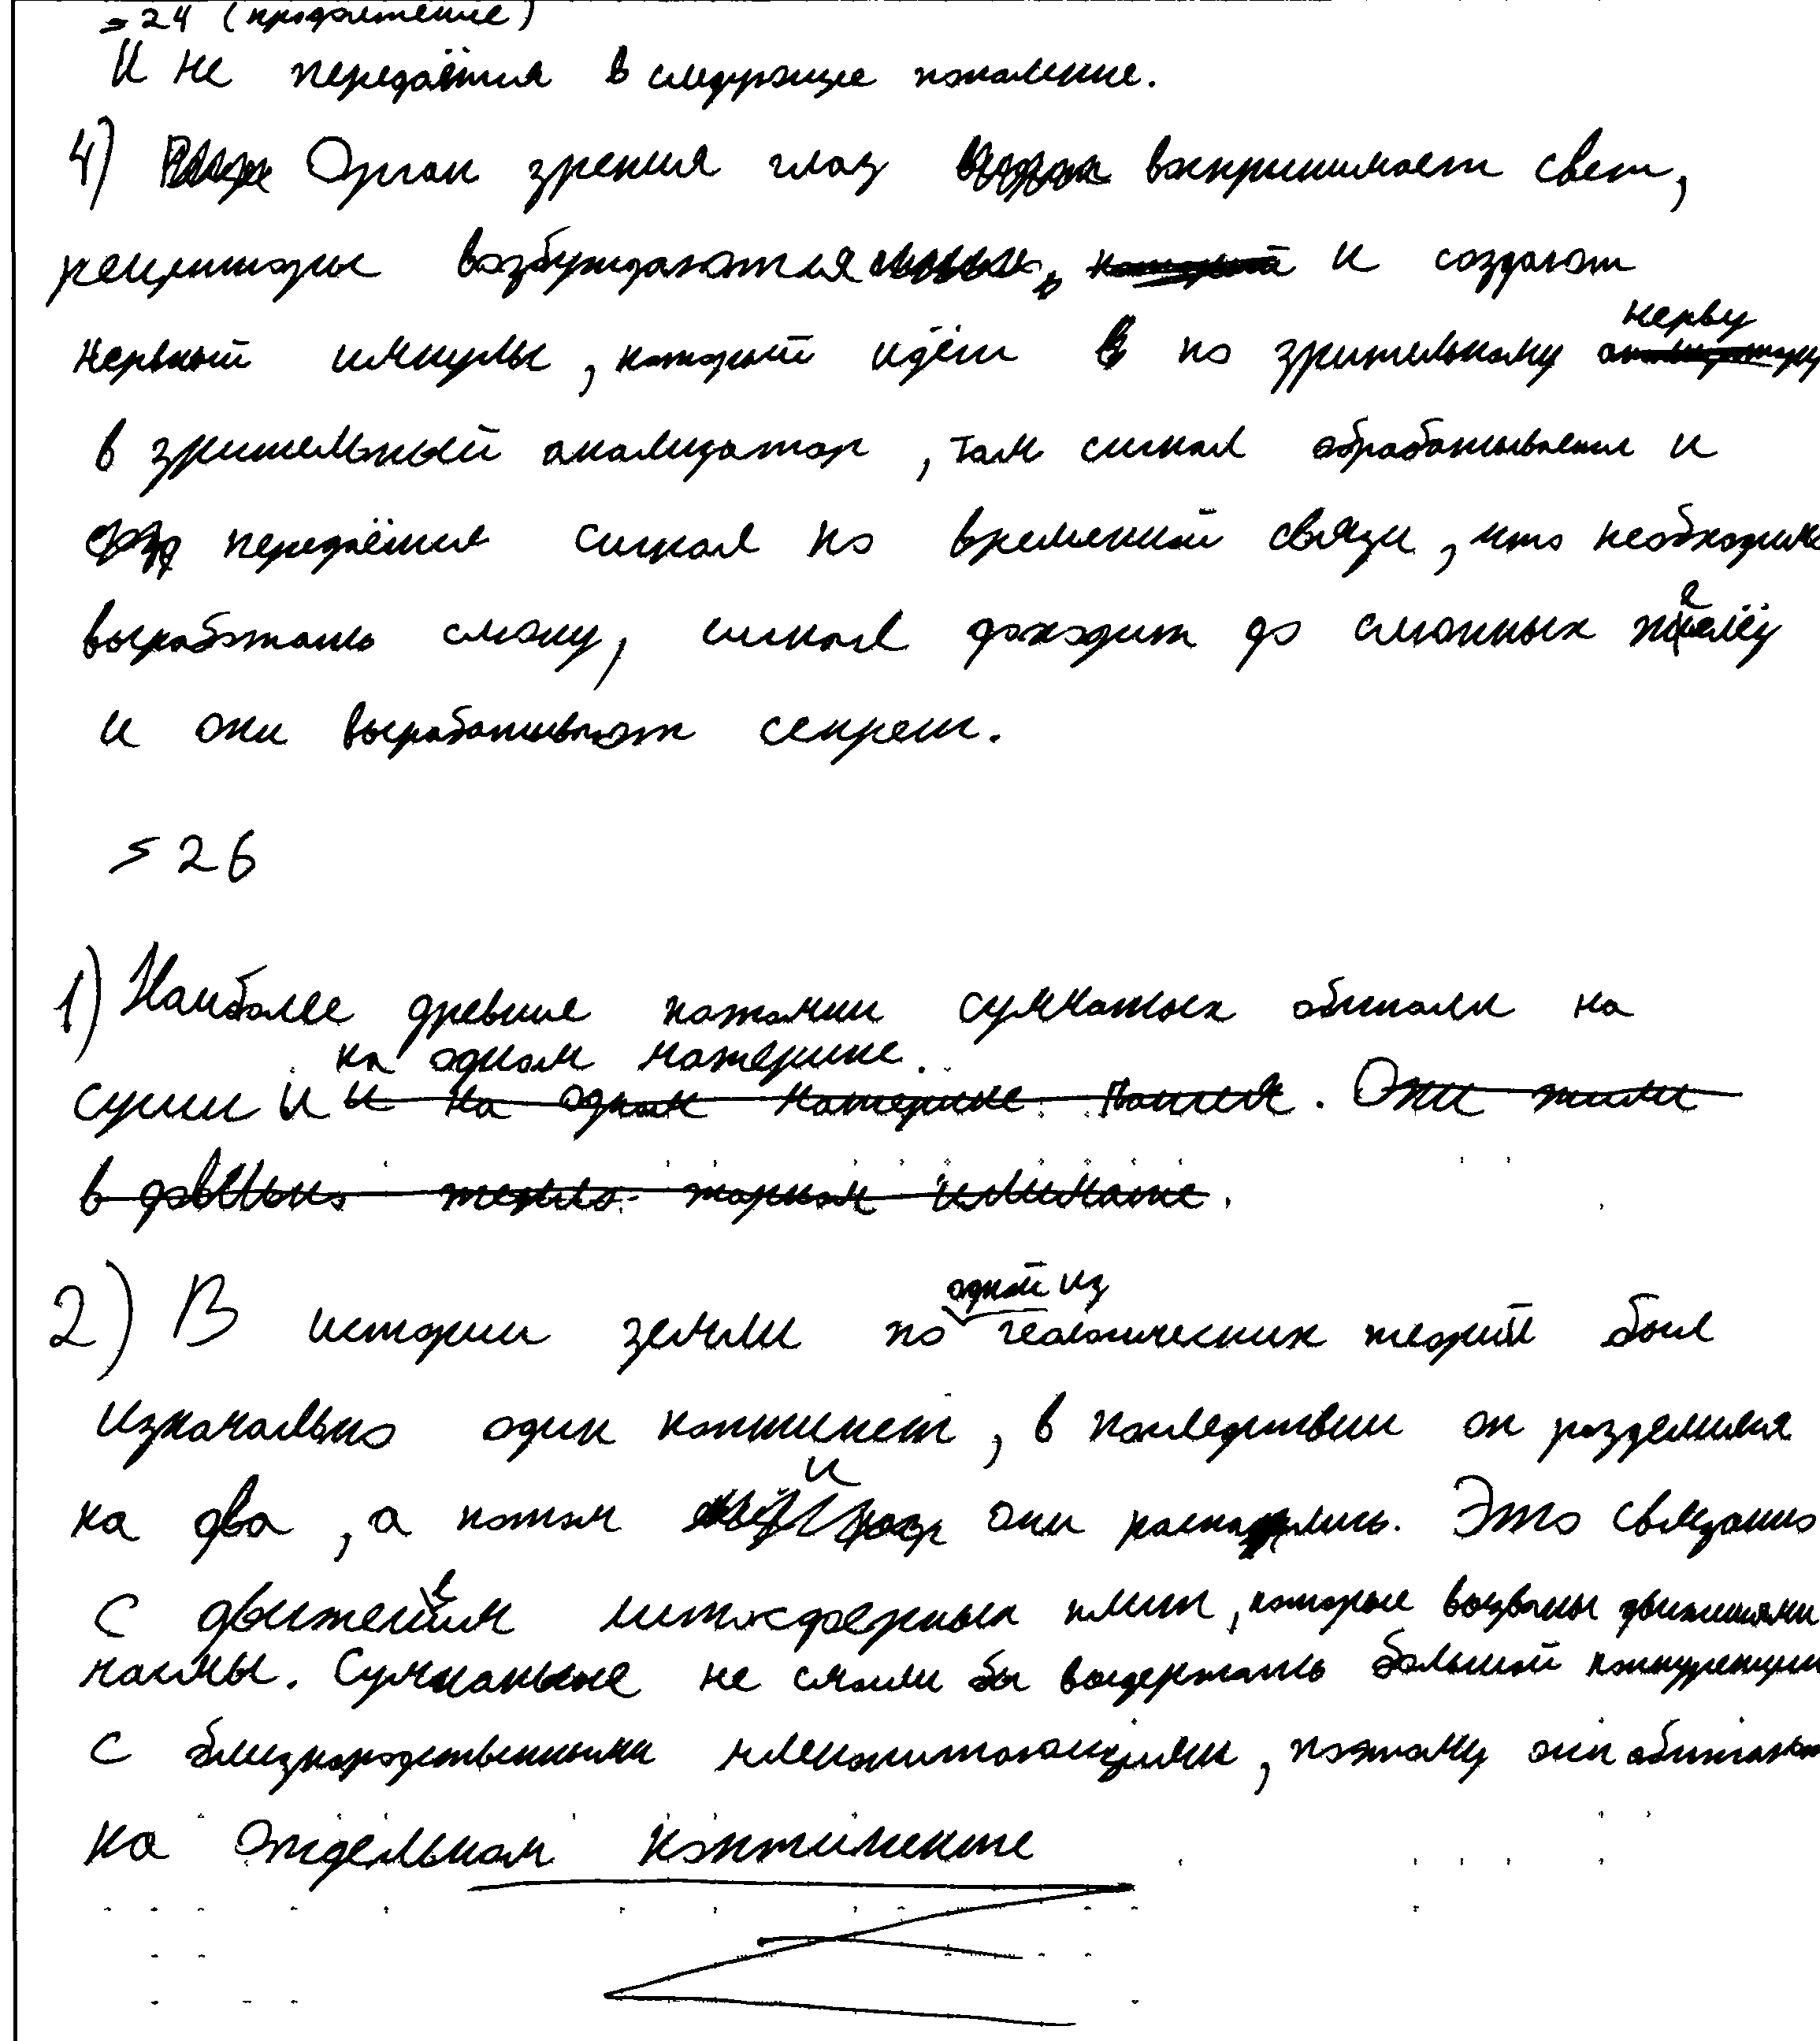 =24 (продолжение)
и не передаётся в следующее поколение.
4) Орган зрения глаз воспринимает свет,
рецепторы возбуждаются и создают
нервный импульс, который идёт по зрительному нерву
в зрительный анализатор, там сигнал обрабатывается и
передаётся сигнал по временной связи, что необходимо
выработать слюну, сигнал доходит до слюнных желёз
и они вырабатывают секрет.
=26
1) Наиболее древние потомки сумчатых обитали на
суши и на одном материке.
2) В истории земли по одной из геологических теорий был
изначально один континент, в последствии он разделился
на два, а потом и они распались. Это связано
с движением литосферных плит, которые вызваны движениями
магмы. Сумчатые не смогли бы выдержать большой конкуренции
с близкородственными млекопитающими, поэтому они обитают
на отдельном континенте